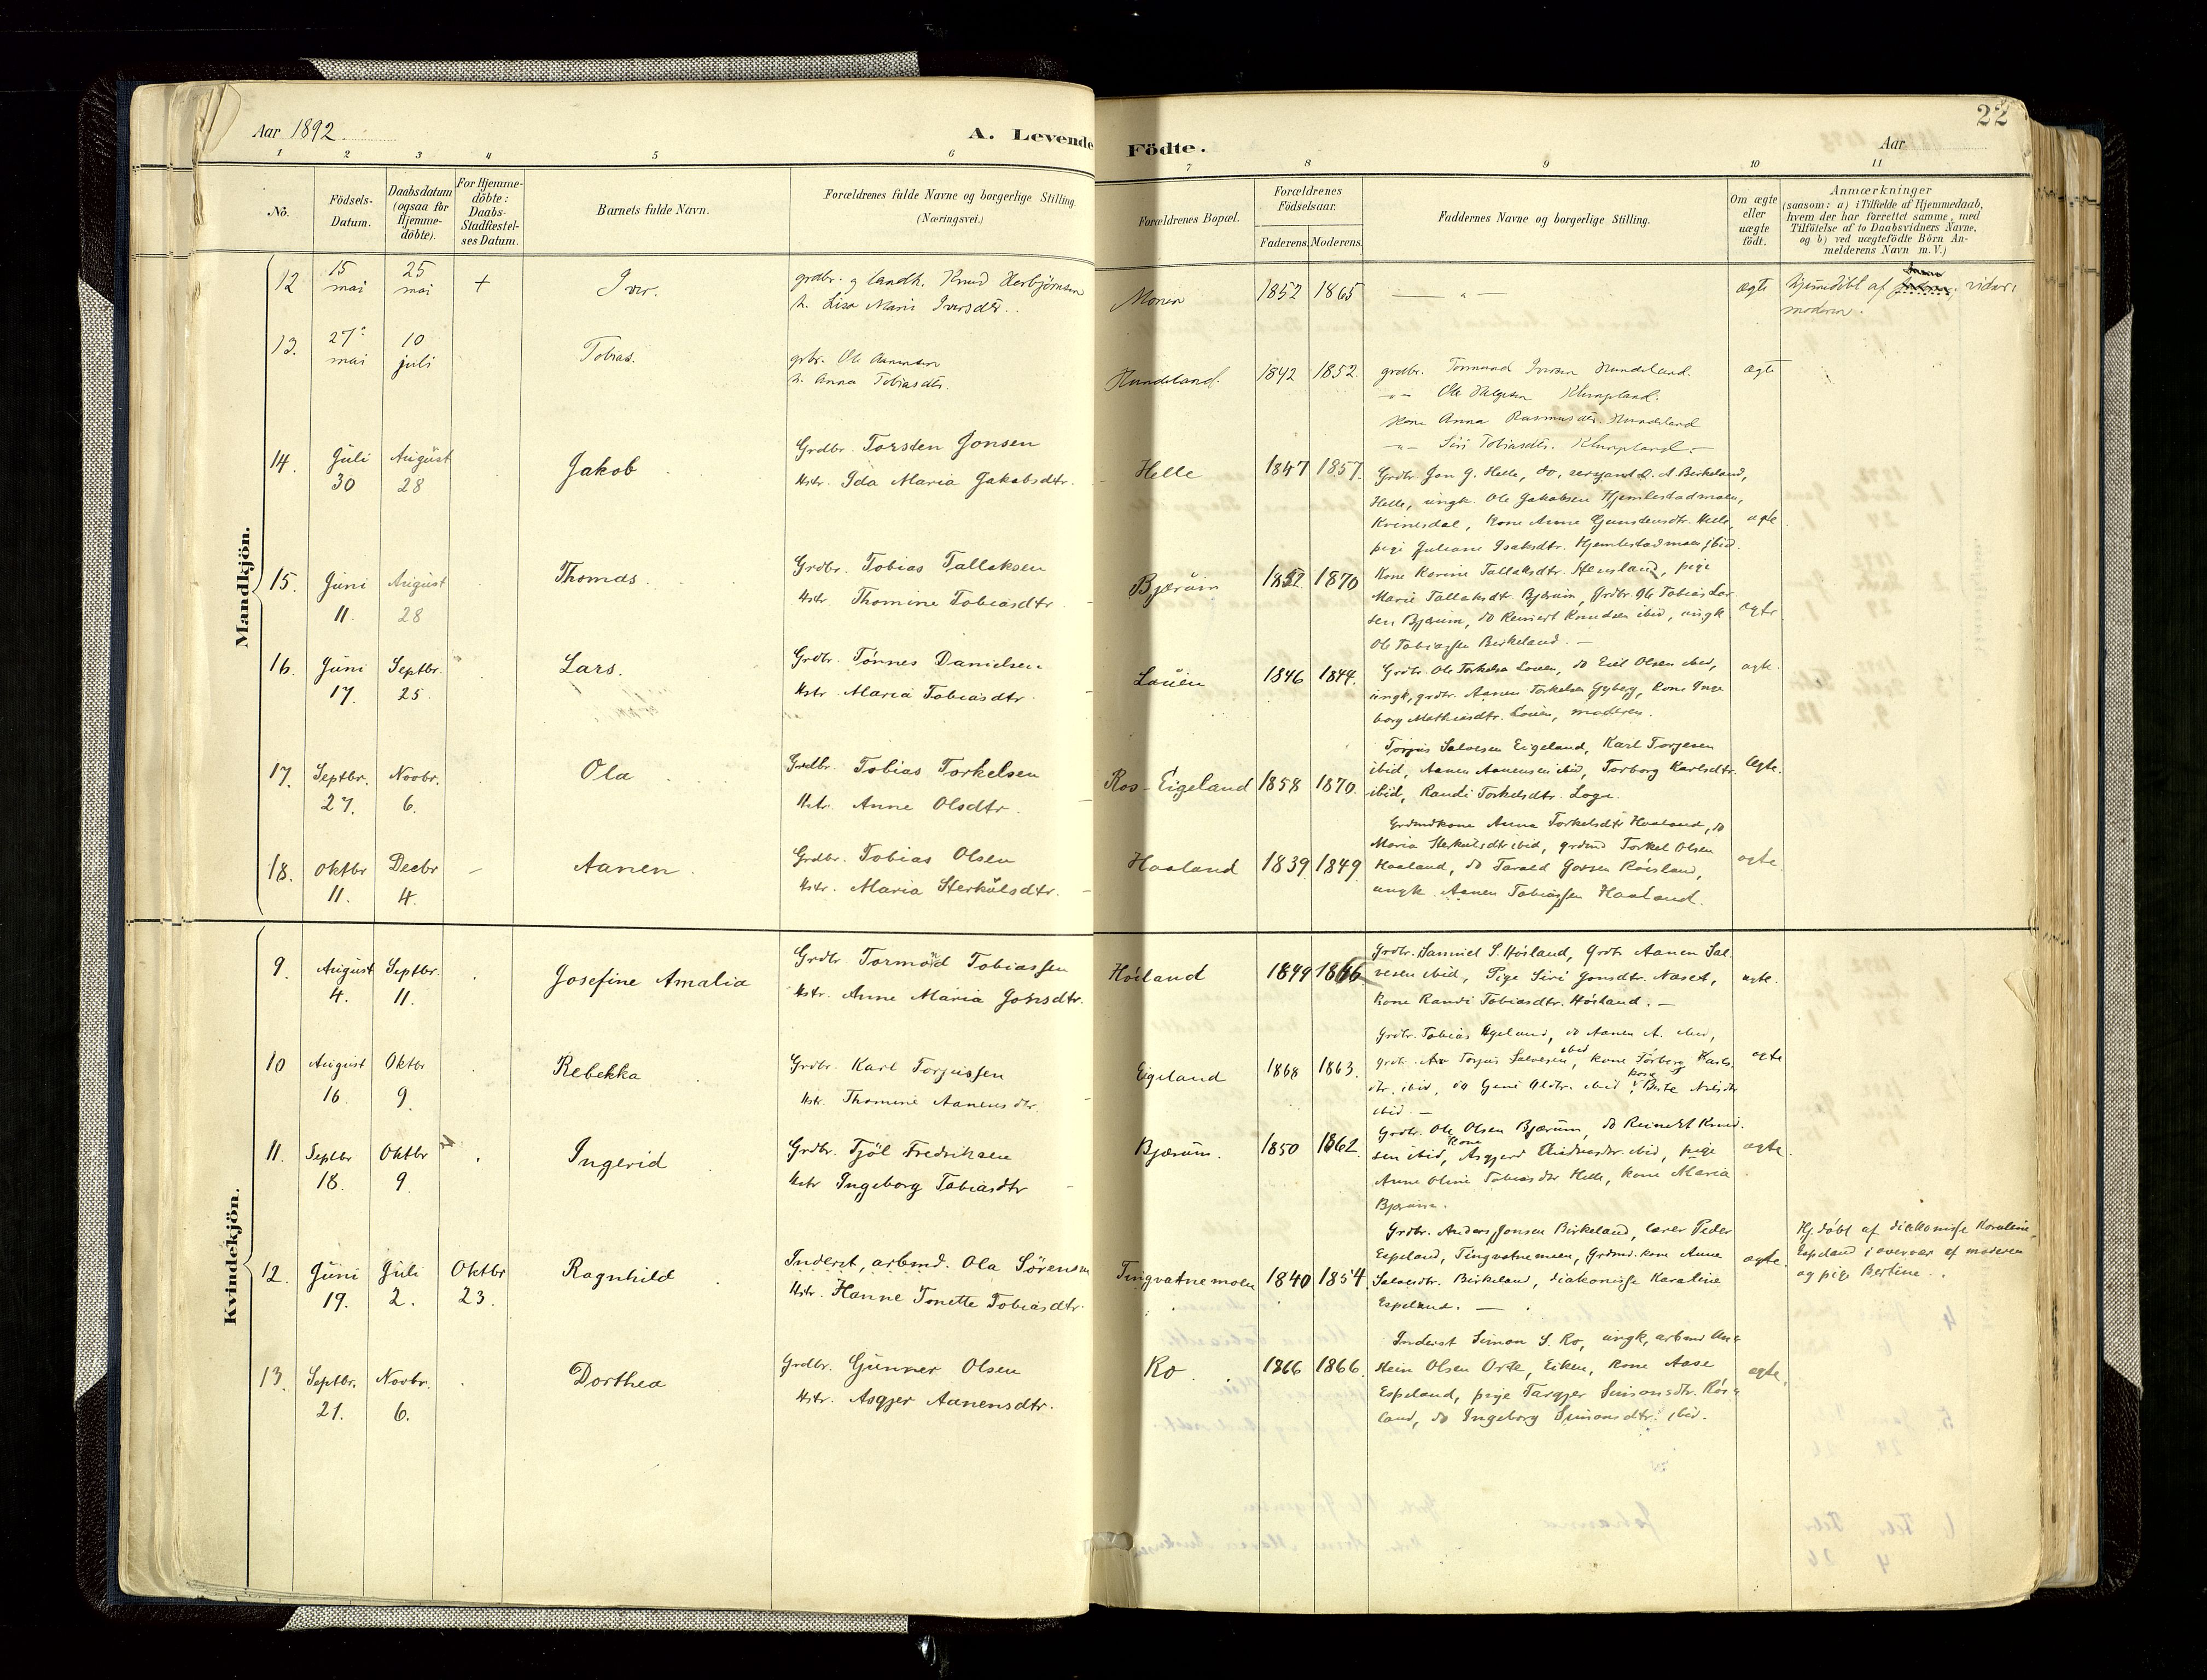 Aar 1892
A. Levende Födte.
22
Aar
1 2 3 4 5 6 7 8 9 10 11
No.
Födsels-
Datum.
Daabsdatum
(ogsaa for
Hjemme-
döbte).
For Hjemme-
döbte:
Daabs-
Stadfæstel-
ses Datum.
Barnets fulde Navn.
Forældrenes fulde Navne og borgerlige Stilling.
(Næringsvei.)
Forældrenes Bopæl.
Forældrenes
Födselsaar.
Faderens. Moderens.
Faddernes Navne og borgerlige Stilling.
Om ægte
eller
uægte
födt.
Anmærkninger
(saasom: a) i Tilfælde af Hjemmedaab,
hvem der har forrettet samme, med
Tilföielse af to Daabsvidners Navne,
og b) ved uægtefödte Börn An-
melderens Navn m. V.)
Mandkjön.
12 15 mai 25 mai + Iver.
grdbr. g landh. Knud Herbjörnsen
h. Lisa Marie Iversdtr.
Monen 1852 1865 — " — ægte
hjemmedöbt af vidner:
moderen.
13. 27 mai 10 juli Tobias.
grbr. Ole Aanensen
h. Anna Tobiasdtr.
Hundeland. 1842 1852.
grdbr. Tormund Iversen Hundeland.
-"- Ole Helgesen Klungland.
Kone Anna Rasmusdtr. Hundeland
-"- Siri Tobiasdtr. Klungland. -
ægte
14. Juli 30 August 28 Jakob
Grdbr. Torsten Jonsen
Hstr. Ida Maria Jakobsdtr.
Helle 1847 1857.
Grdbr. Jon G. Helle, do, sersjant A. Birkeland,
Helle, ungk. Ole Jakobsen Hjemlestadmoen,
Kvinesdal, Kone Anne Gunstensdtr. Helle,
pige Juliane Isaksdtr. Hjemlestadmoen ibid.
ægte
15. Juni 11. August 28 Thomas.
Grdbr. Tobias Tallaksen
Hstr Thomine Tobiasdtr
Bjærum 1852 1870
Kone Karine Tallaksdtr. Stensland, pige
Marie Tallaksdtr Bjærum, Grdbr. Ole Tobias Lar-
sen Bjærum, do Reinert Knudsen ibid, ungk
Ole Tobiassen Birkeland. -
ægte.
16. Juni 17. Septbr. 25. Lars.
Grdbr. Tönnes Danielsen
Hstr. Maria Tobiasdtr
Lauen 1846 1844.
Grdbr. Ole Torkelsen Louen, do Eiel Olsen ibid,
ungk, grdbr. Aanen Torkelsen Gyberg, Kone Inge-
borg Mathiasdtr. Louen, moderen.
ægte.
17. Septbr. 27. Novbr. 6. Ola
Grdbr. Tobias Torkelsen
Hstr. Anne Olsdtr.
Ros-Eigeland 1858 1870.
Torjus Salvesen Eigeland, Karl Torjesen
ibid, Aanen Aanensen ibid, Torborg Karlsdtr.
ibid, Randi Torkelsdtr. Loga.
ægte.
18. Oktbr 11. Decbr 4. - Aanen.
Grdbr. Tobias Olsen
Hstr. Maria Sterkulsdtr.
Haaland 1839 1849
Grdmdkone Anna Torkelsdtr Haaland, do
Maria Sterkulsdtr ibid, grdmd Torkel Olsen
Haaland, do Tarald Röisland,
ungk Aanen Tobiassen Haaland.
ægte
Kvindekjön.
9. August 4. Septbr. 11. Josefine Amalia
Grdbr Tormod Tobiassen
Hstr. Anne Maria Jonsdtr.
Höiland 1849 1866
Grdbr. Samuel S. Höiland, Grdbr Aanen Sal-
vesen ibid, Pige Siri Jonsdtr. Naset,
Kone Randi Tobiasdtr. Höiland. -
ægte.
10 August 16 Oktbr 9. Rebekka
Grdbr. Karl Torjussen
Hstr. Thomine Aanensdtr.
Eigeland 1868 1863.
Grdbr. Tobias Egeland, do Aanen A. ibid,
grdbr. Torjus Salvesen ibid, Kone Torborg Karls-
dtr. ibid, do Guni Oldtr. ibid, Kone Berte Nilsdtr
ibid. -
ægte
11. Septbr 18. Oktbr 9. Ingerid
Grdbr. Tjöl Fredriksen
Hstr Ingeborg Tobiasdtr
Bjærum. 1850 1862.
Grdbr. Ole Olsen Bjærum, do Reinert Knud-
sen ibid, Kone Asgjerd ibid, pige
Anne Oline Tobiasdtr Helle, Kone Maria
Bjærum.
ægte.
12. Juni 19. Juli 2. Oktbr 23. Ragnhild
Inderst, arbmd. Ola Sörensen
Hstr. Hanne Tonette Tobiasdtr.
Tingvatnemoen 1840 1854.
Grdbr. Anders Jonsen Birkeland, lærer Peder
Espeland, Tingvatnemoen, Grdmd.kone Anne
Salvesdtr. Birkeland, diakonisse Karoline
Espeland. -
ægte.
Hj.döbt af diakonisse Karoline
Espeland i overvær af moderen
og pige Bertine.
13. Septbr. 21. Novbr. 6. Dorthea
Grdbr. Gunner Olsen
Hstr. Asgjer Aanensdtr.
Ro 1866 1866.
Inderst Simon S. Ro, ungk, arbmd An-
stein Olsen Orte, Eiken, Kone Aase
Espeland, pige Targjer Simonsdtr. Rös-
land, do Ingeborg Simonsdtr. ibid.
ægte.